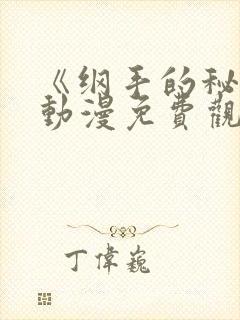 《纲手的秘
動漫免費觀
丁偉巍